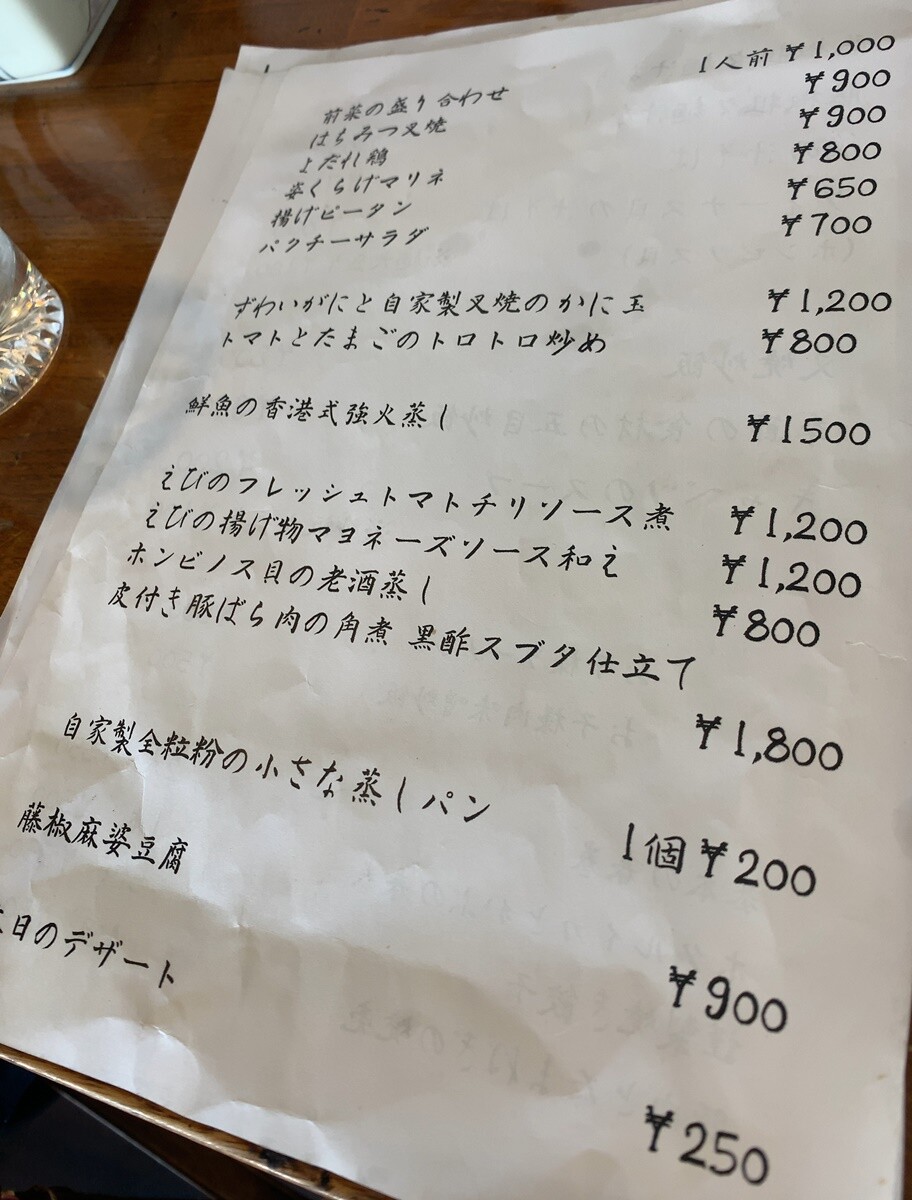 前菜の盛り合わせ 1人前 ¥1,000
はちみつ叉焼 ¥900
よだれ鶏 ¥900
姿くらげマリネ ¥800
揚げピータン ¥650
パクチーサラダ ¥700
ずわいがにと自家製叉焼のかに玉 ¥1,200
トマトとたまごのトロトロ炒め ¥800
鮮魚の香港式強火蒸し ¥1500
えびのフレッシュトマトチリソース煮 ¥1,200
えびの揚げ物マヨネーズソース和え ¥1,200
ホンビノス貝の老酒蒸し ¥800
皮付き豚ばら肉の角煮 黒酢スブタ仕立て ¥1,800
自家製全粒粉の小さな蒸しパン 1個 ¥200
藤椒麻婆豆腐 ¥900
日のデザート ¥250